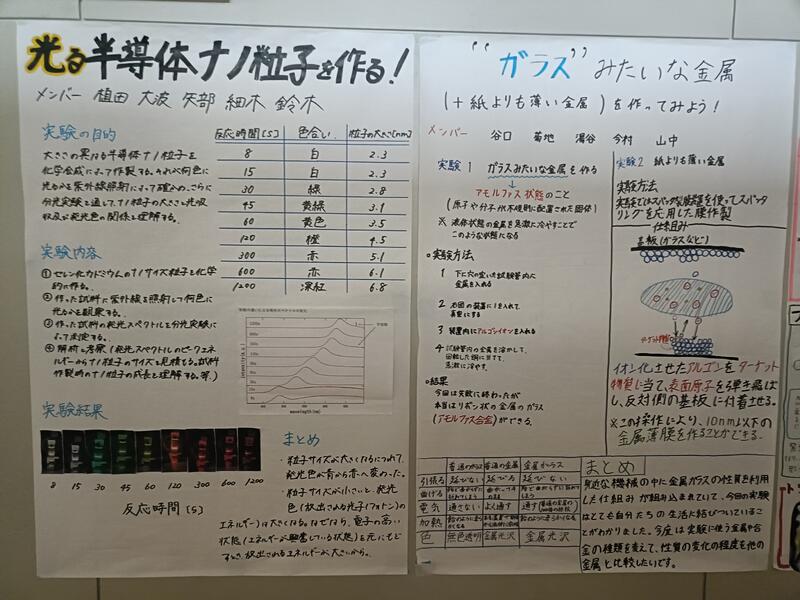 光る半導体ナノ粒子を作る!
メンバー 植田 大波 矢部 細木 鈴木
実験の目的
大きさの異なる半導体ナノ粒子を
化学合成によって作製する。それが何色に
光るかを紫外線照射によって確かめ、さらに
分光実験を通して、ナノ粒子の大きさと光吸
収及び発光色の関係を理解する。
実験内容
①セレン化カドミウムのナノサイズ粒子を化学
的に作る。
②作った試料に紫外線を照射して何色に
光るかを観察する。
③作った試料の発光スペクトルを分光実験に
よって測定する。
④解析と考察(発光スペクトルのピークエネ
ルギーからナノ粒子のサイズを見積る。試料
作製時のナノ粒子の成長を理解する。等)
反応時間[S] 色合い 粒子の大きさ[nm]
8 白 2.3
15 白 2.3
30 緑 2.8
45 黄緑 3.1
60 黄色 3.5
120 橙 4.5
300 赤 5.1
600 赤 6.1
1200 深紅 6.8
wavelength(nm)
実験結果
8 15 30 45 60 120 300 600 1200
反応時間[S]
まとめ
・粒子サイズが大きくなるにつれて、
発光色が青から赤へ変わった。
・粒子サイズが小さいと、発光
色(放出される光子(フォトン)の
エネルギー)は大きくなる。なぜなら、電子の高い
状態(エネルギーが興奮している状態)を元にもど
すとき、放出されるエネルギーが大きいから。
"ガラス"みたいな金属
(+紙よりも薄い金属)を作ってみよう!
メンバー 谷口 菊地 湯谷 今村 山中
実験1 ガラスみたいな金属を作る
アモルファス状態のこと
(原子や分子が不規則に配置された固体)
※ 液体状態の金属を急激に冷やすことで
このような状態になる
実験方法
1 下に穴の空いた試験管内に
金属を入れる
2 右図の装置に1を入れて、
真空にする
3 装置内にアルゴンイオンを入れる
4 試験管内の金属を溶かして、
回転した銅に当てて、
急激に冷やす。
結果
今回は失敗に終わったが
本当はリボン状の金属のガラス
(アモルファス合金)ができる。
実験2 紙よりも薄い金属
実験方法
リングを応用した膜作製
仕組み
基板(ガラスなど)
イオン化させたアルゴンをターゲット
物質に当て、表面原子を弾き飛ば
し、反対側の基板に付着させる。
※この操作により、10nm以下の
金属薄膜を作ることができる。
普通のガラス 普通の金属 金属ガラス
引張る 延びない 延びる 延びない
曲げる
電気 通さない よく通す
加熱
色 無色透明 金属光沢 金属光沢
まとめ
身近な機械の中に金属ガラスの性質を利用
した仕組みが組み込まれていて、今回の実験
はとても自分たちの生活に結びついているこ
とがわかりました。今度は実験に使う金属や合
金の種類を変えて、性質の変化の程度を他の
金属と比較したいです。